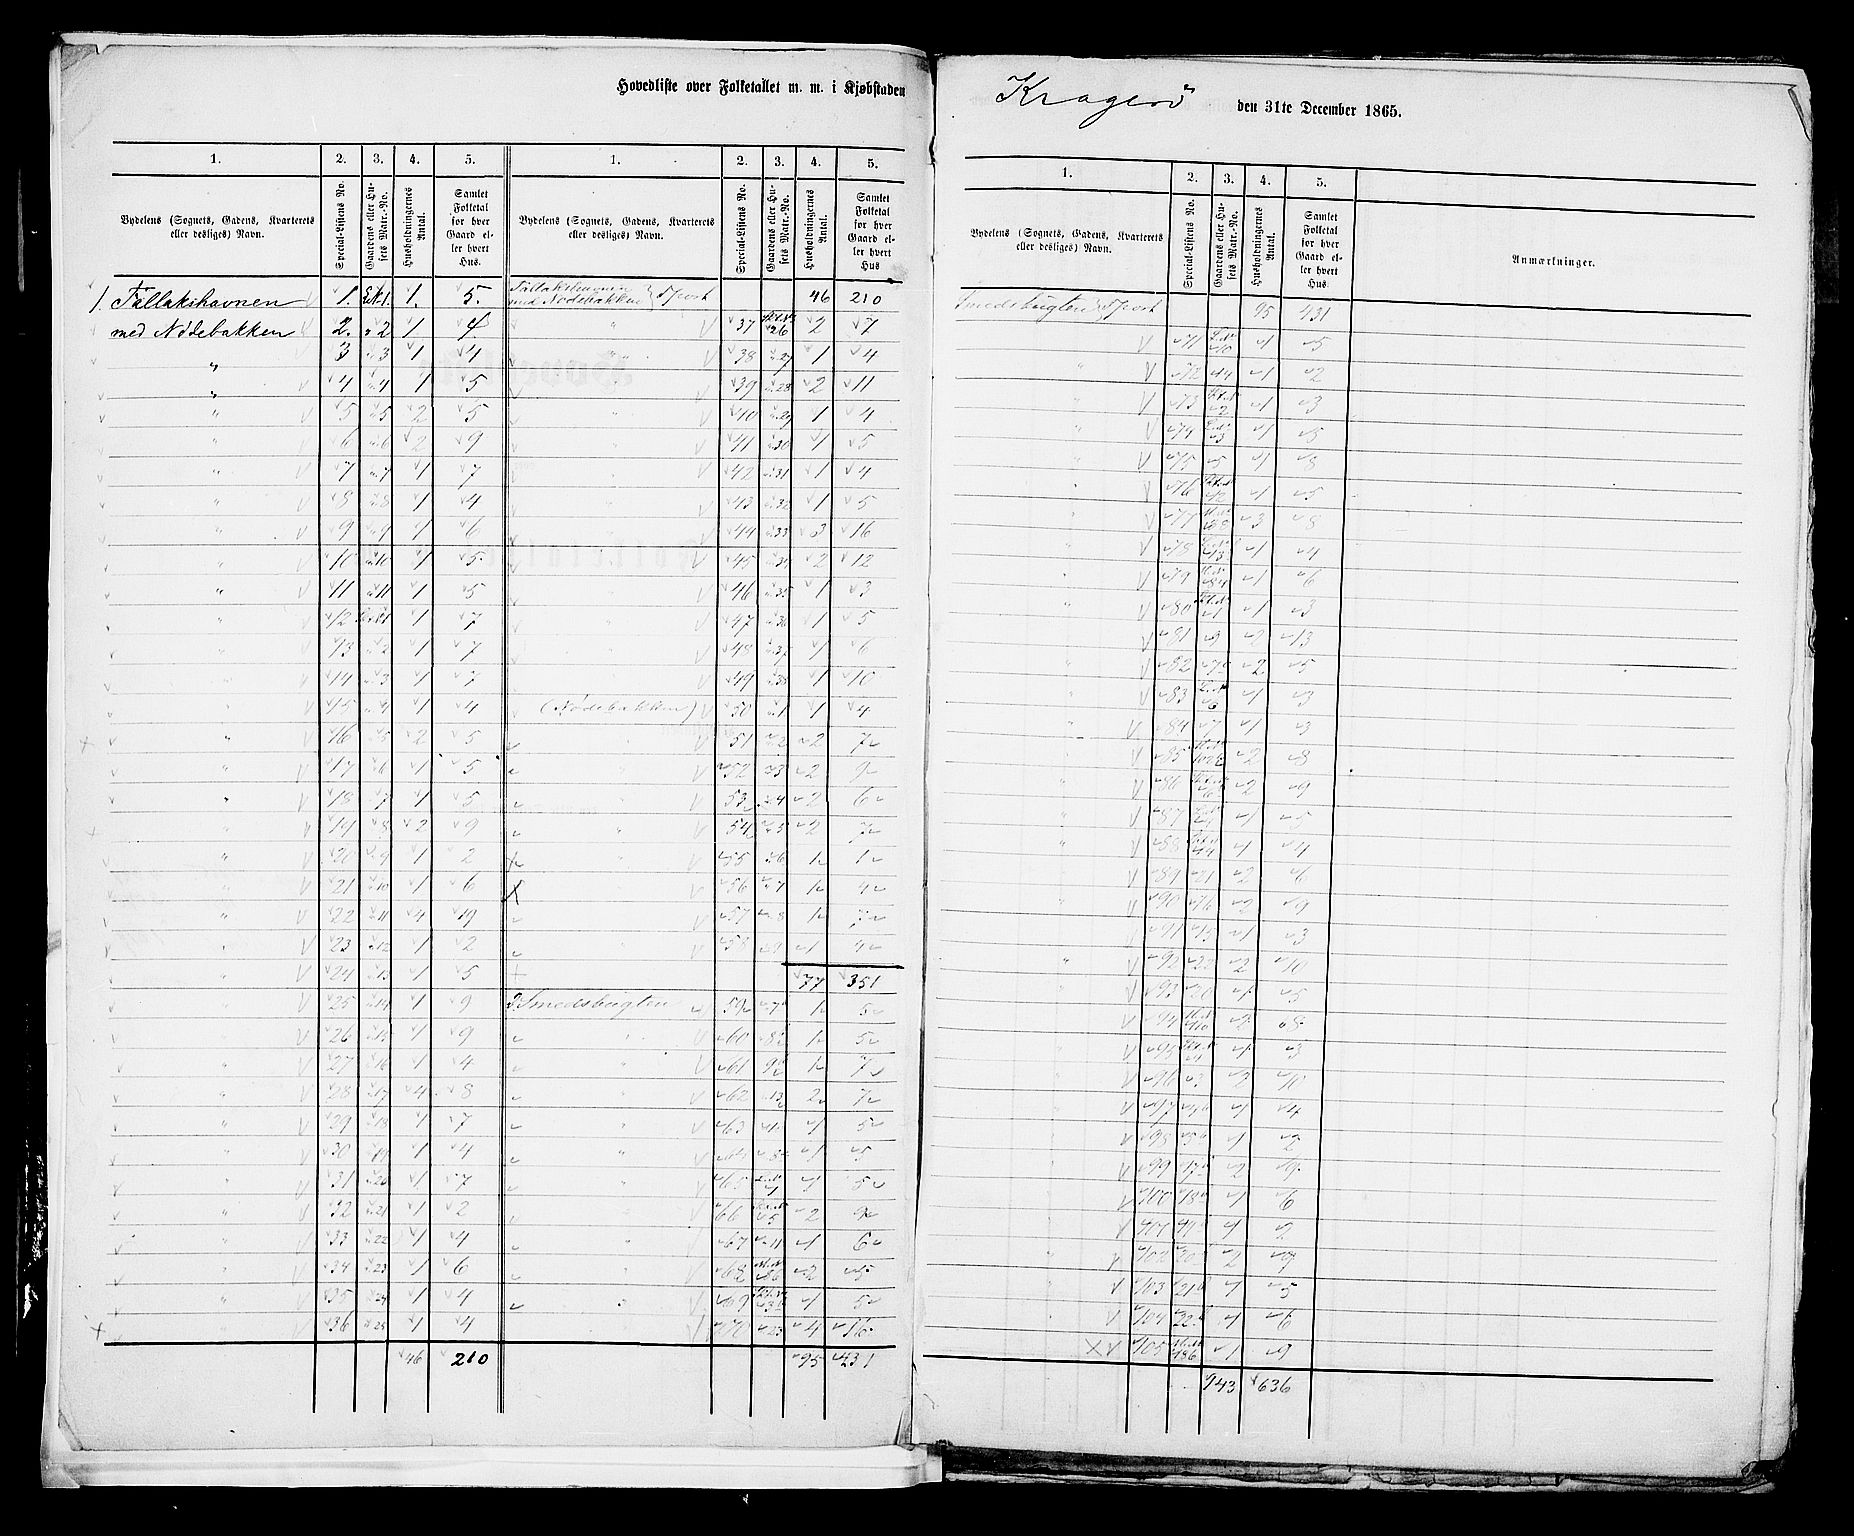 Hovedliste over Folketallet m. m. i Kjøbstaden Kragerö den 31te December 1865.
1. 2. 3. 4. 5. 1. 2. 3. 4. 5.
Bydelens (Sognets, Gadens, Kvarterets eller desliges) Navn. Special-Listens No. Gaardens eller Husets Matr.-No. Husholdningernes Antal. Samlet Folketal for hver Gaard eller hvert Hus. Bydelens (Sognets, Gadens, Kvarterets eller desliges) Navn. Special-Listens No. Gaardens eller Husets Matr.-No. Husholdningernes Antal. Samlet Folketal for hver Gaard eller hvert Hus
1. Tallakshavnen 1. 1. 1. 5.
med Nødebakken 2. " 2 1 4.
" 3 " 3 1 4
" 4 " 4 1 5
5 " 5 2 5
" 6 " 6 2 9
" 7 " 7 1 7
" 8 " 8 1 4
" 9 " 9 1 6
" 10 " 10 1 5
" 11 " 11 1 5
" 12 1 7
" 13 " 2 1 7
" 14 " 3 1 7
" 15 " 4 1 4
" 16 " 5 2 5
" 17 " 6 1 5
" 18 " 7 1 5
" 19 " 8 2 9
" 20 " 9 1 2
" 21 " 10 1 6
" 22 " 11 4 19
" 23 " 12 1 2
" 24 " 13 1 5
" 25 " 14 1 9
" 26 " 15 1 9
" 27 " 16 1 4
" 28 " 17 4 8
" 29 " 18 1 7
" 30 " 19 1 4
" 31 " 20 1 7
" 32 " 21 1 2
" 33 " 22 1 4
" 34 " 23 1 6
" 35 " 24 1 4
" 36 " 25 1 4
46 210
Tallakshavnen med Nødebakken } Tpost 46 210
" 37 26 2 7
" 38 " 27 1 4
" 39 " 28 2 11
" 40 " 29 1 4
" 41 " 30 1 5
" 42 " 31 1 4
" 43 " 32 1 5
" 44 " 33 3 16
" 45 " 34 2 12
" 46 " 35 1 3
" 47 " 36 1 5
" 48 " 37 1 6
" 49 " 38 1 10
(Nødebakken) 50 " 1 1 4
" 51 " 2 2 7
" 52 " 3 2 9
" 53 " 4 2 6
" 54 " 5 2 7
" 55 " 6 1 1
" 56 " 7 1 4
" 57 " 8 1 7
" 58 1 4
77 351
2. Smedsbugten 59 7 1 5
" 60 8 1 5
" 61 9 1 7
" 62 13 2 7
" 63 1 5
" 64 1 5
" 65 1 5
" 66 5 2 9
" 67 11 1 6
" 68 86 2 5
" 69 1 5
70 23 4 16
95 431
1. 2. 3. 4. 5.
Bydelens (Sognets, Gadens, Kvarterets eller desliges) Navn. Special-Listens No. Gaardens eller Husets Matr.-No. Husholdningernes Antal. Samlet Folketal for hver Gaard eller hvert Hus. Anmærkninger.
Smedsbugten } Tpost 95 431
71 10 1 5
" 72 14 1 2
" 73 2 1 3
" 74 3 1 5
" 75 5 1 8
" 76 12 1 5
" 77 3 8
" 78 13 1 4
" 79 1 6
" 80 1 1 3
" 81 9 2 13
" 82 2 5
" 83 6 1 3
" 84 7 1 3
" 85 2 8
" 86 2 9
" 87 1 5
" 88 14 1 4
" 89 2 6
" 90 2 6
" 91 15 1 3
" 92 22 2 10
" 93 20 1 5
" 94 2 8
" 95 1 3
" 96 3 2 10
" 97 1 4
" 98 5 1 2
" 99 17 2 6
" 100 18 1 6
" 101 1 2
" 102 20 2 7
" 103 21 1 5
" 104 22 1 6
105 186 1 9
143 636